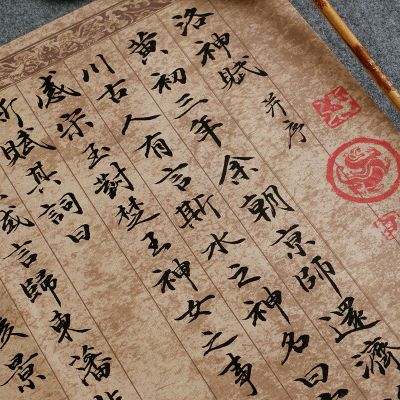 洛神賦 并序
黄初三年余朝京師還濟
川古人有言斯水之神名曰
感宋玉對楚王神女之事
斯賦其詞曰
域言歸東藩
景